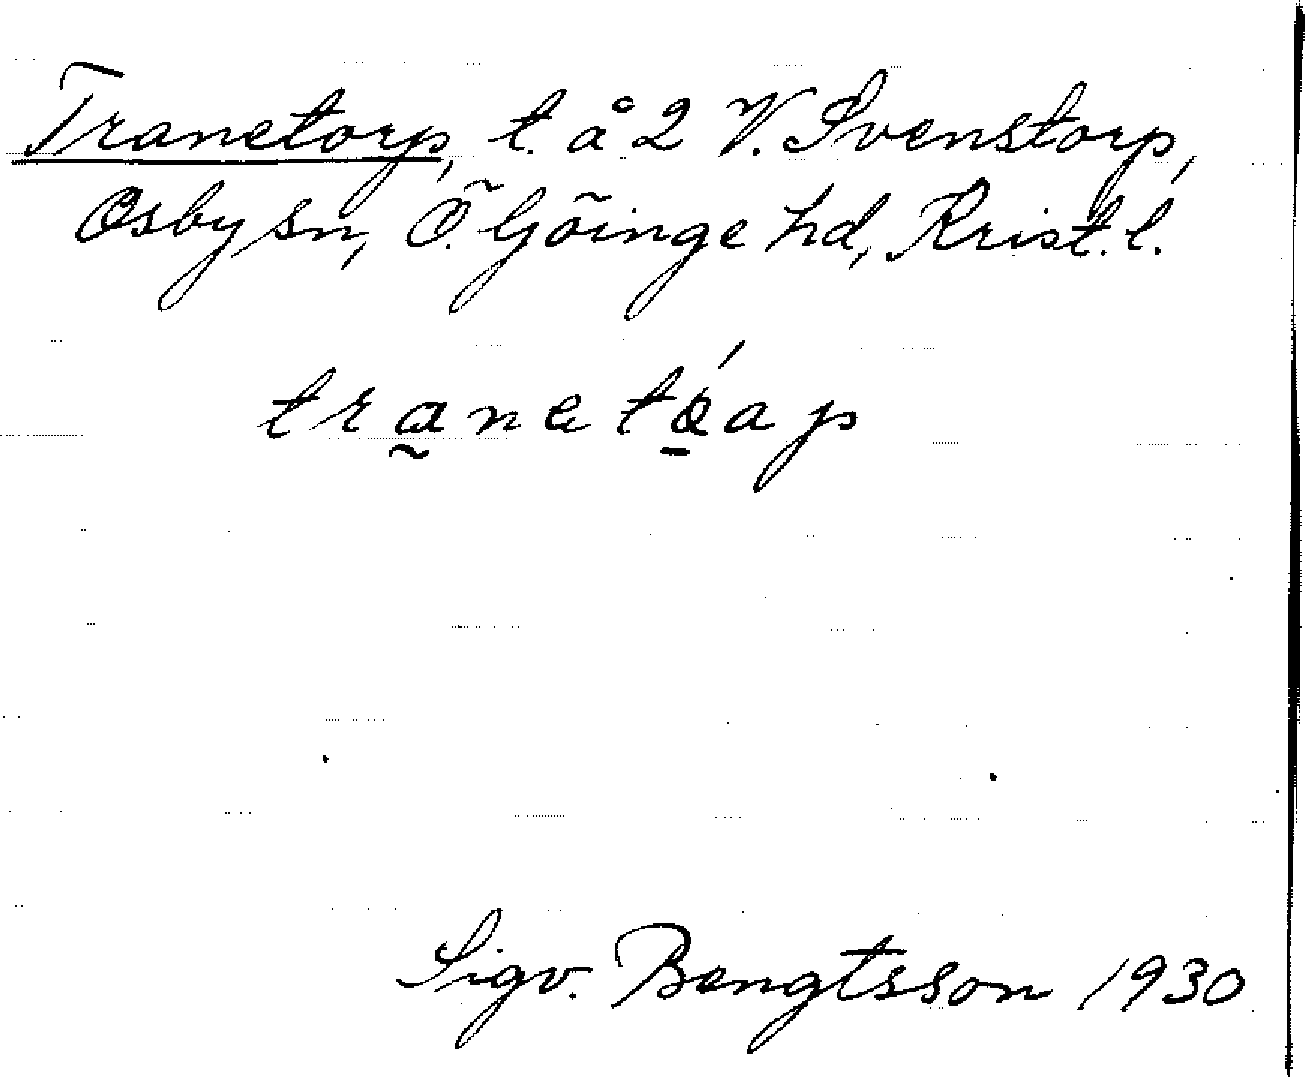 Tranetorp, t. å 2 V. Svenstorp,
Osby sn, Ö. Göinge hd, Krist. l.
tranetóap
Sigv. Bengtsson 1930